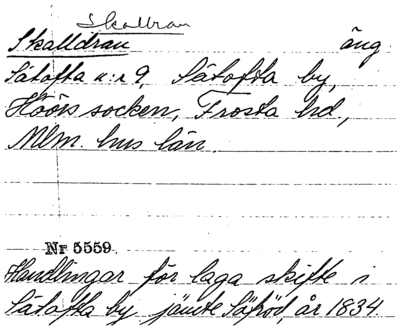 Skalldran
Skalldran äng
Sätofta n:r 9, Sätofta by,
Höörs socken, Frosta hd.,
Mlm. hus län.
Nr 5559.
Handlingar för laga skifte i
Sätofta by jämte Säfröd, år 1834.